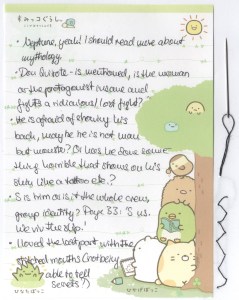 すみっコぐらし
• Neptune, yeah! I should read more about
mythology.
• Don Quixote - is mentioned, is the woman
or the protagonist insane and
fights a ridiculous lost fight?
• He is afraid of showing his
back, maybe he is not man
but monster? Or does he have some-
thing horrible that shows on his
skin, like a tattoo etc.?
S is him or is it the whole crew,
group identity? Page 33: S us.
We w the ship!
• I loved the last part with the
stitched mouths (not being
able to tell
secrets?)
ひなたぼっこ
ひなたぼっこ